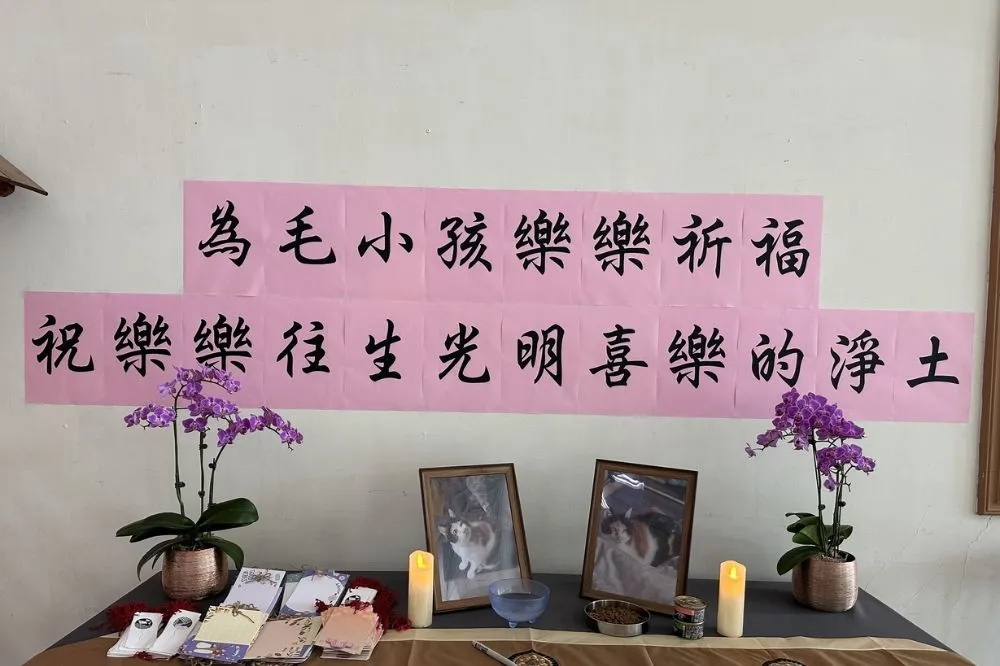 為毛小孩樂樂祈福
祝樂樂往生光明喜樂的淨土